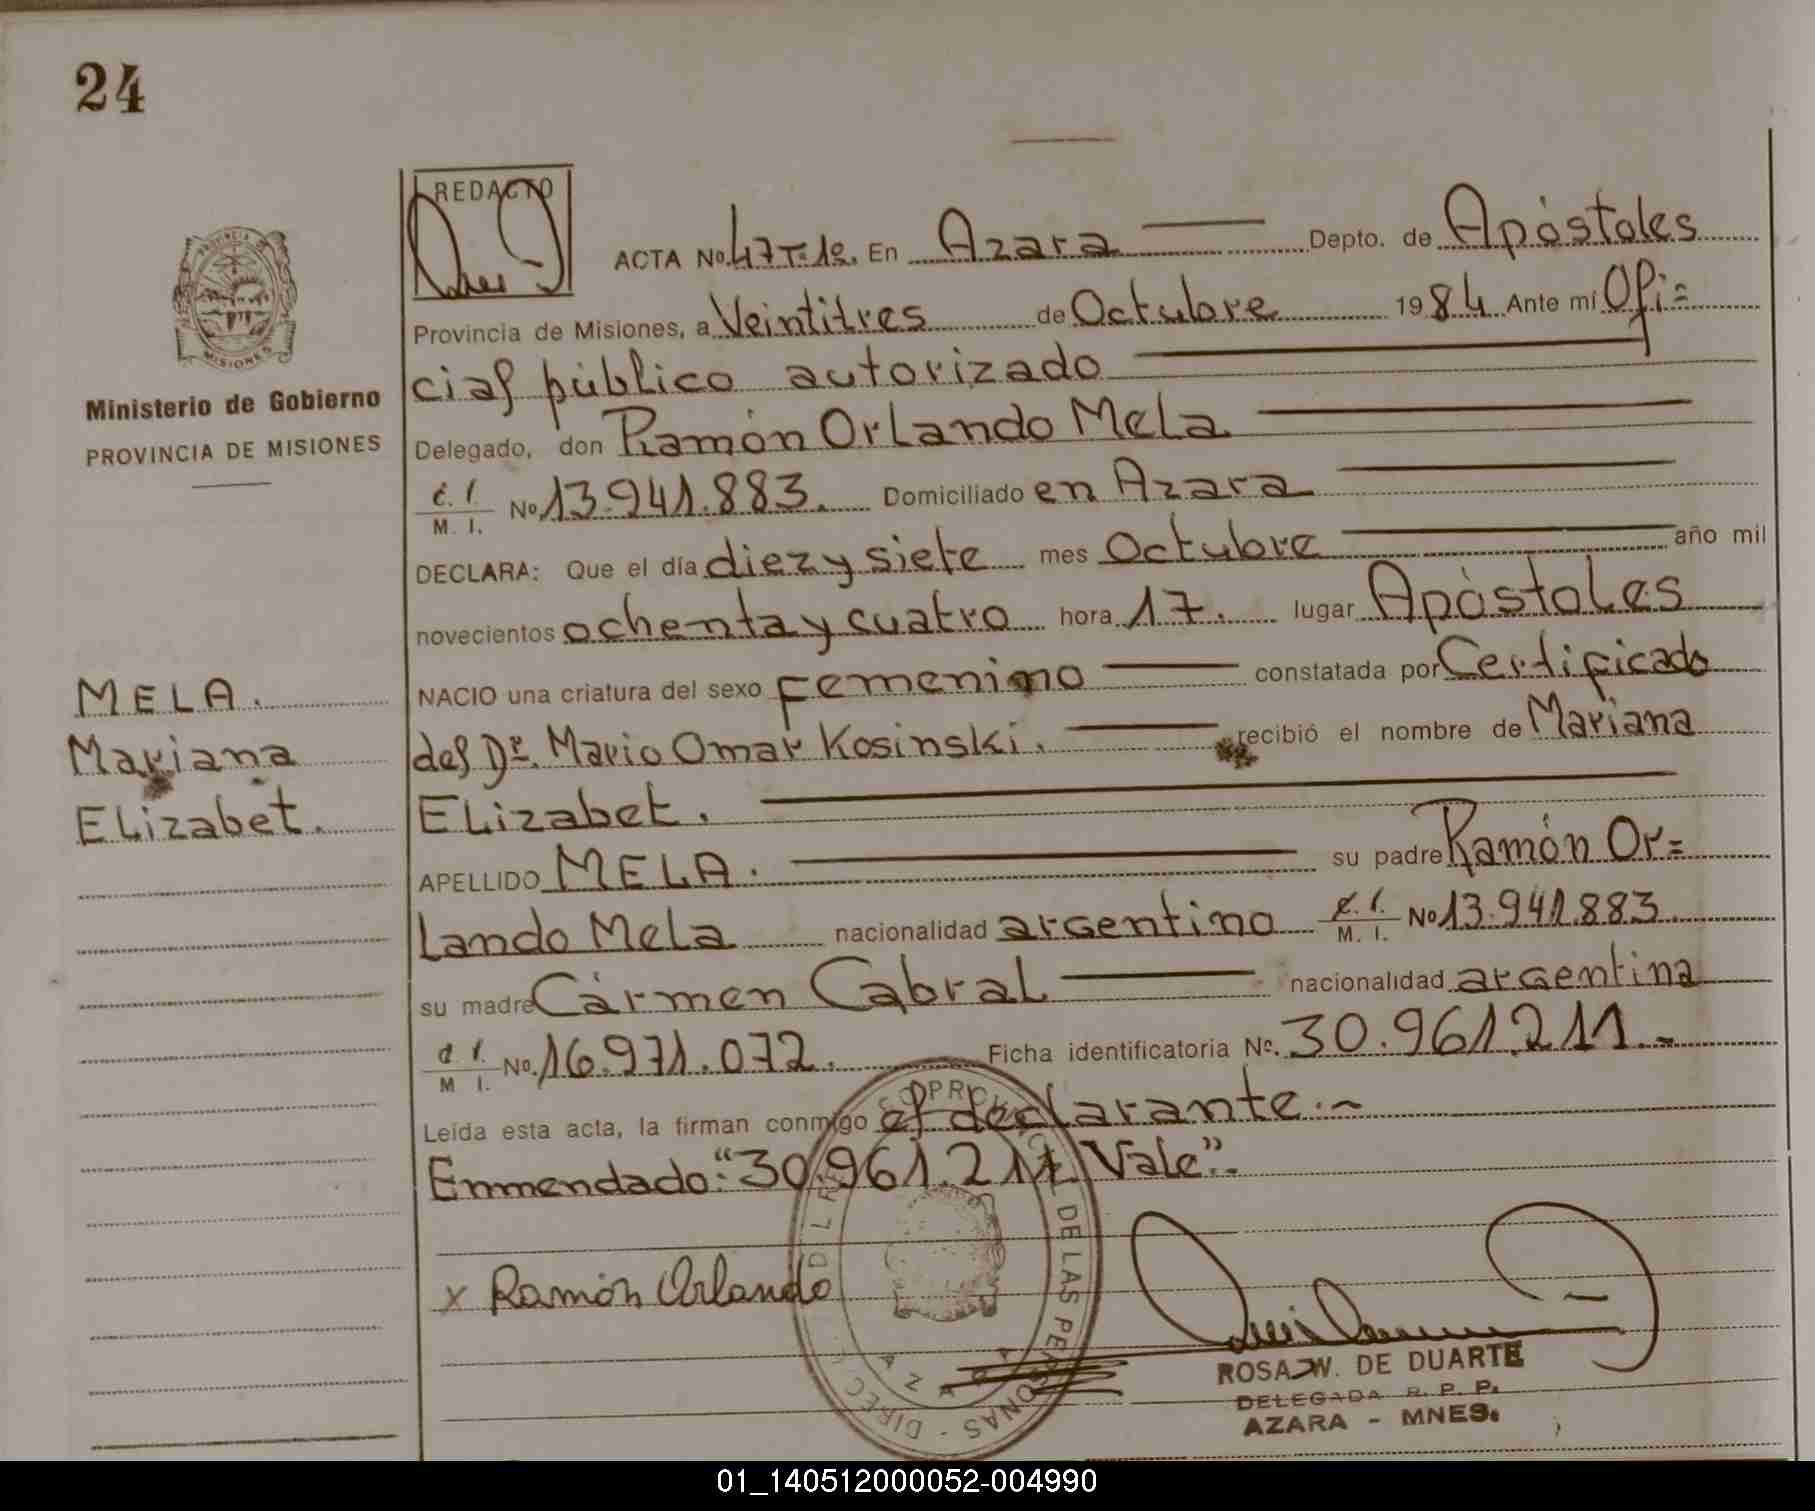 24
REDACTO
ACTA No. 47 T: 1º. En Azara Depto. de Apóstoles
Provincia de Misiones, a Veintitres de Octubre 1984 Ante mí Ofi=
cial público autorizado
Delegado, don Ramón Orlando Mela
C. I.
M. I. No 13.941.883. Domiciliado en Azara
DECLARA: Que el día diez y siete mes Octubre año mil
novecientos ochenta y cuatro hora 17. lugar Apóstoles
NACIO una criatura del sexo femenino constatada por Certificado
del Dr. Mario Omar Kosinski. recibió el nombre de Mariana
Elizabet.
APELLIDO MELA. su padre Ramón Or=
lando Mela nacionalidad argentino C. I.
M. I. No 13.941.883
su madre Cármen Cabral nacionalidad argentina
C. I.
M I. No. 16.971.072. Ficha identificatoria No. 30.961.211.-
Leída esta acta, la firman conmigo el declarante.-
Enmendado: "30.961.211 Vale".
x Ramón Orlando
ROSA W. DE DUARTE
DELEGADA R. P. P.
AZARA - MNES.
PROVINCIA DE
MISIONES
Ministerio de Gobierno
PROVINCIA DE MISIONES
MELA.
Mariana
Elizabet.
DE LAS PERSONAS
AZARA
01_140512000052-004990